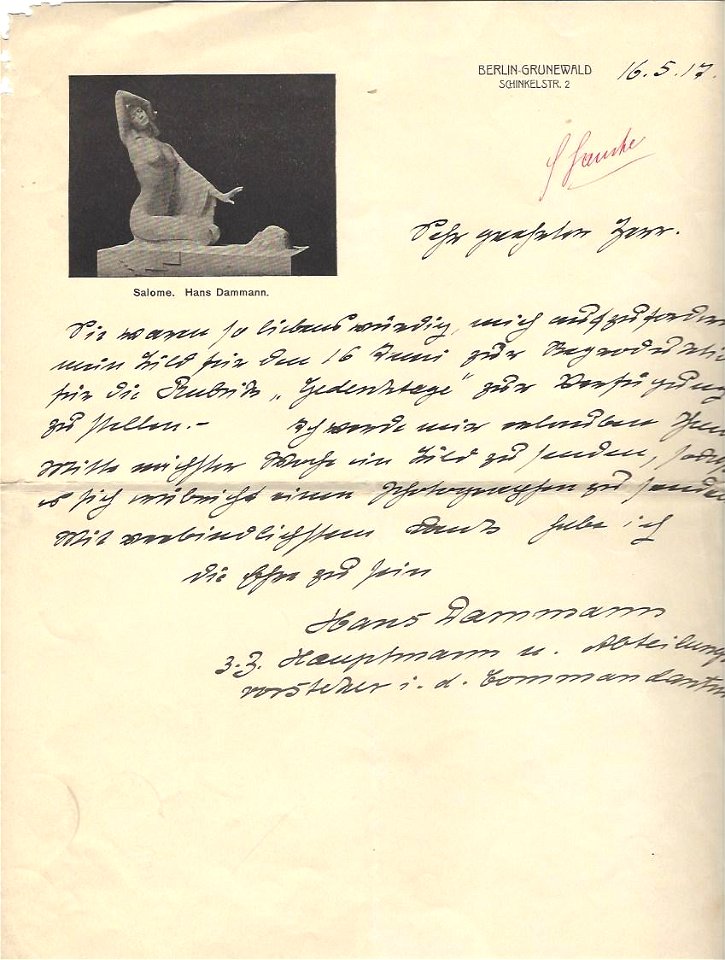 BERLIN-GRUNEWALD
SCHINKELSTR. 2
16.5.17.
Sehr geehrter Herr.
Salome. Hans Dammann.
Sie waren so liebenswürdig, mich aufzufordern
mein Bild für den 16 Juni zur Reproduktio
für die Rubrik „Gedenktage" zur Verfügung
zu stellen.- Ich werde mir erlauben Ihn
Mitte nächster Woche ein Bild zu senden, sodaß
es sich erübricht einen Photographen zu senden
Mit verbindlichstem Dank habe ich
die Ehre zu sein
Hans Dammann
z.Z. Hauptmann u. Abteilungs
vorsteher i. d. Commandantur